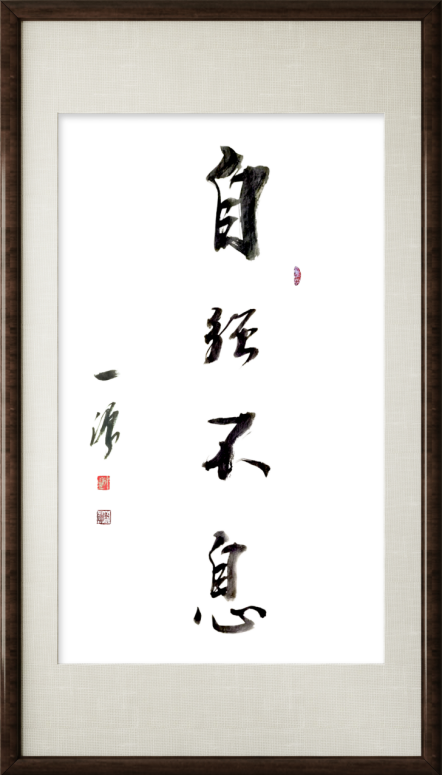 自强不息
一源